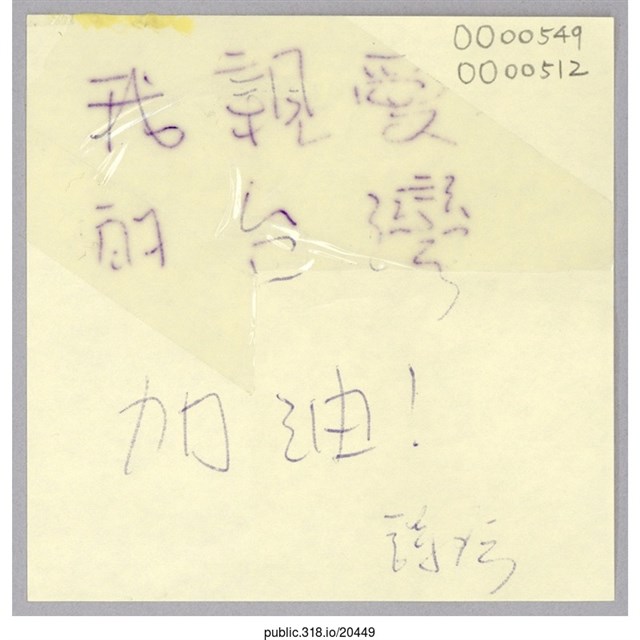 0000549
0000512
我親愛
的台灣
加油!
public.318.io/20449